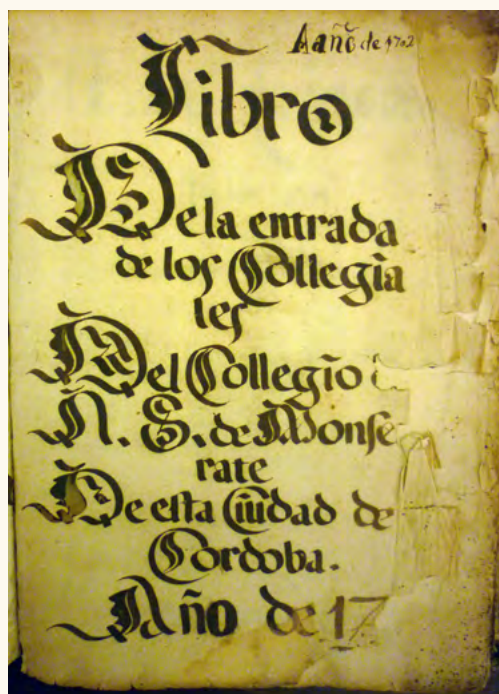 Aañō de 1702
Libro
De la entrada
de los Collegia
les
Del Collegio
N. S. de Monse
rate
De esta Ciudad de
Cordoba.
Año de 17